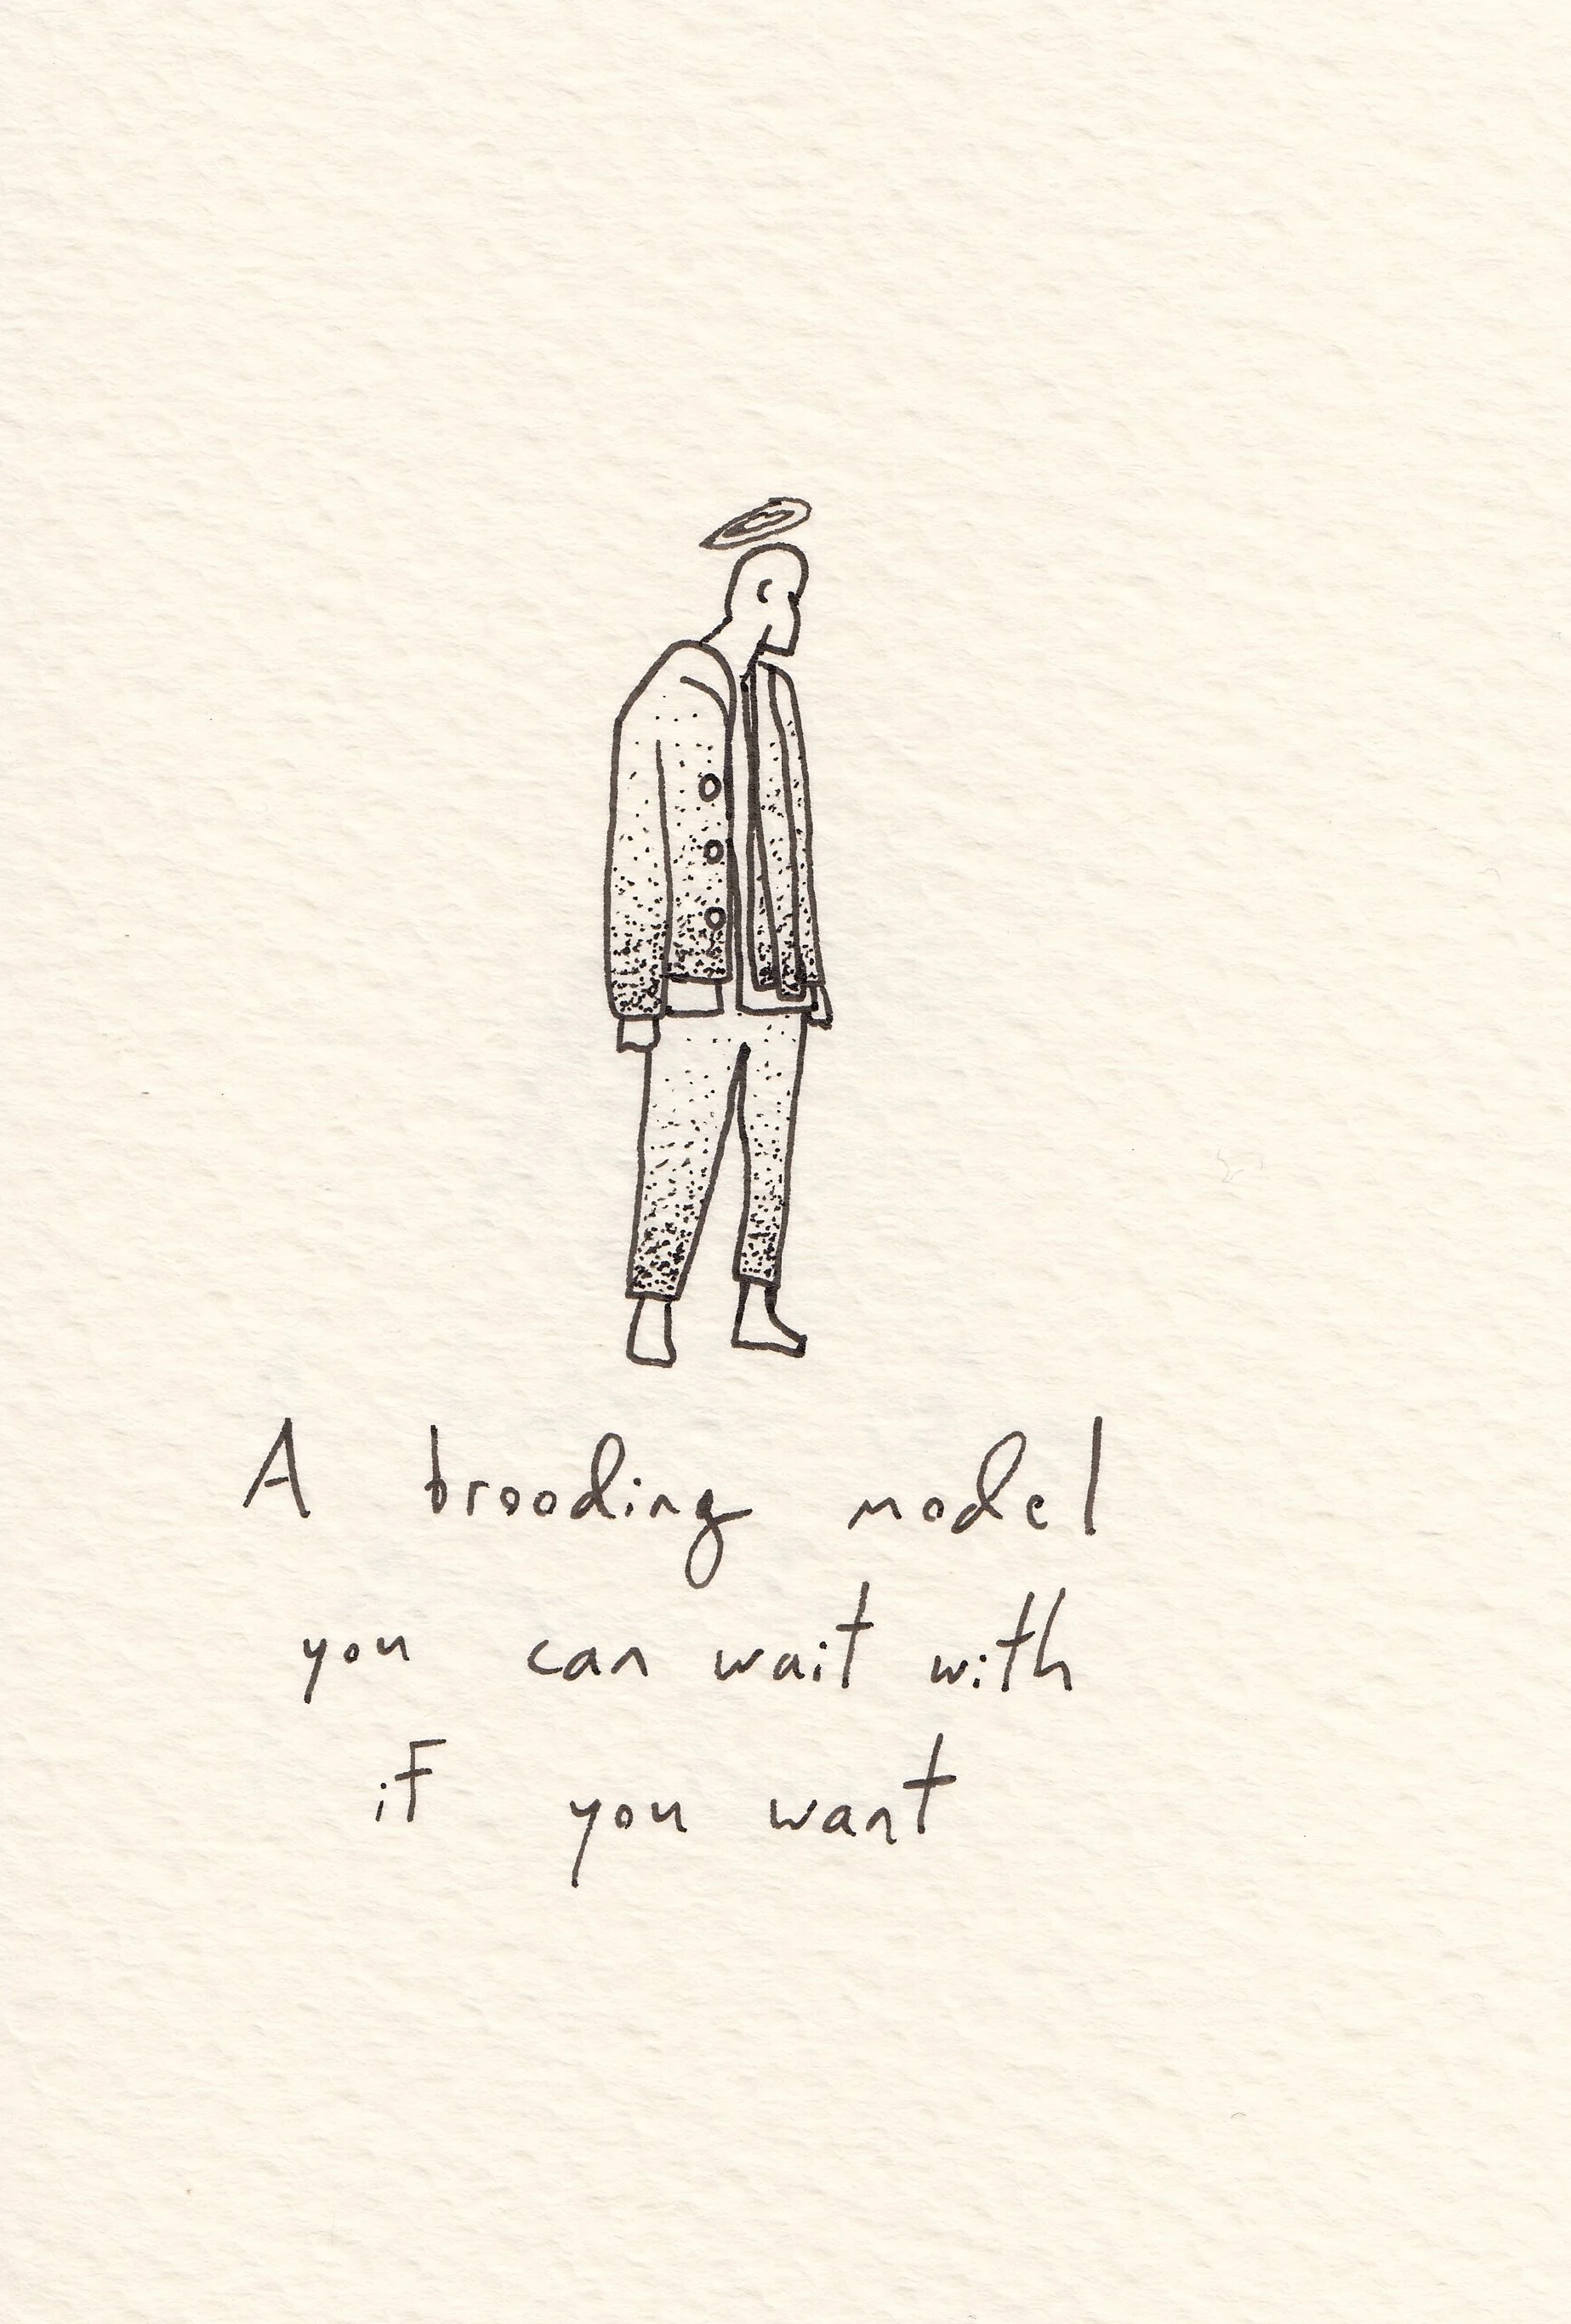 A brooding model
you can wait with
if you want